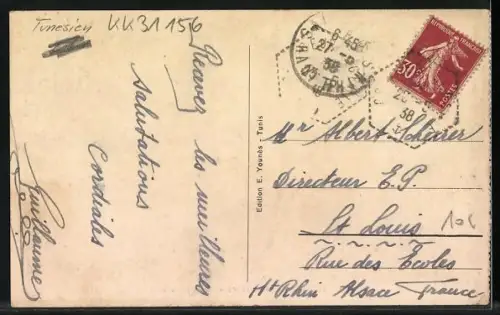 Tunesien KK31156
Recevez les meilleures
salutations
Cordiales
Guillaume
Edition E. Younès - Tunis
6-45
27-
38
REPUBLIQUE FRANÇAISE
30c
POSTES
38
Mr Albert Scherer
Directeur E.P.
St Louis
Rue des Écoles
Ht Rhin Alsace France